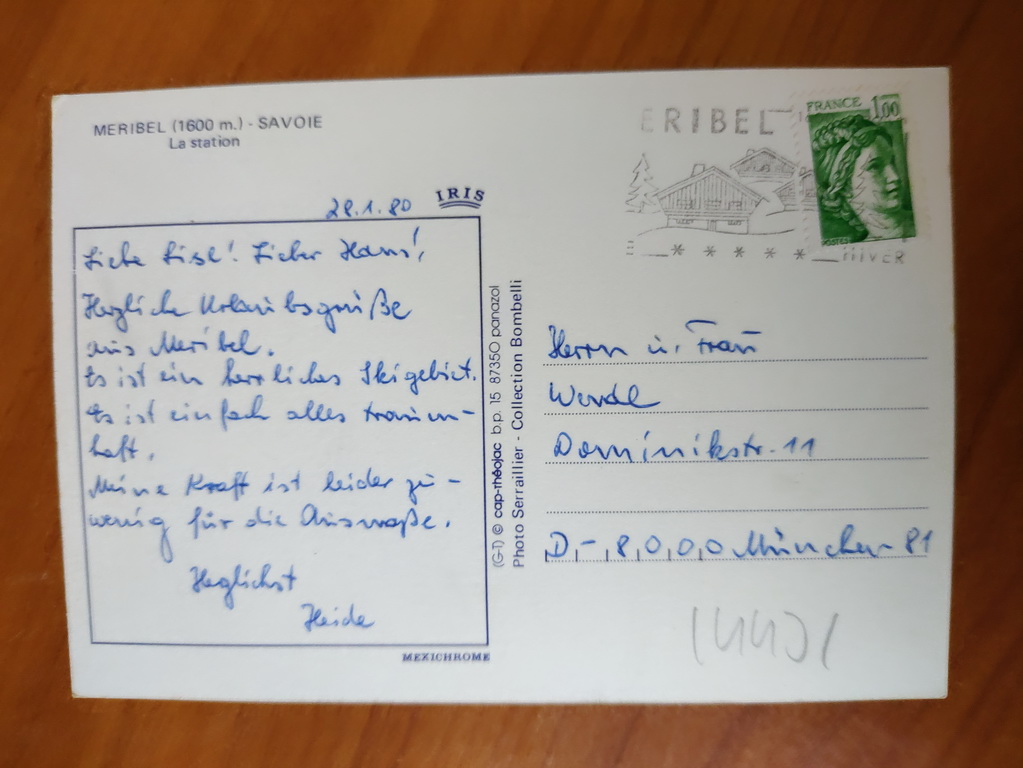 MERIBEL (1600 m.) - SAVOIE
La station
28.1.80
IRIS
Liebe Lisl! Lieber Hans!
Herzliche Urlaubsgrüße
aus Meribel.
Es ist ein herrliches Skigebiet.
Es ist einfach alles traum-
haft.
Meine Kraft ist leider zu-
wenig für die Ausmaße.
Herzlichst
Heide
MEXICHROME
(G-T) © cap-théojac b.p. 15 87350 panazol
Photo Serraillier - Collection Bombelli
ERIBEL
HIVER
FRANCE 1,00
POSTES
Herrn u. Frau
Dominikstr. 11
D-8000 München 81